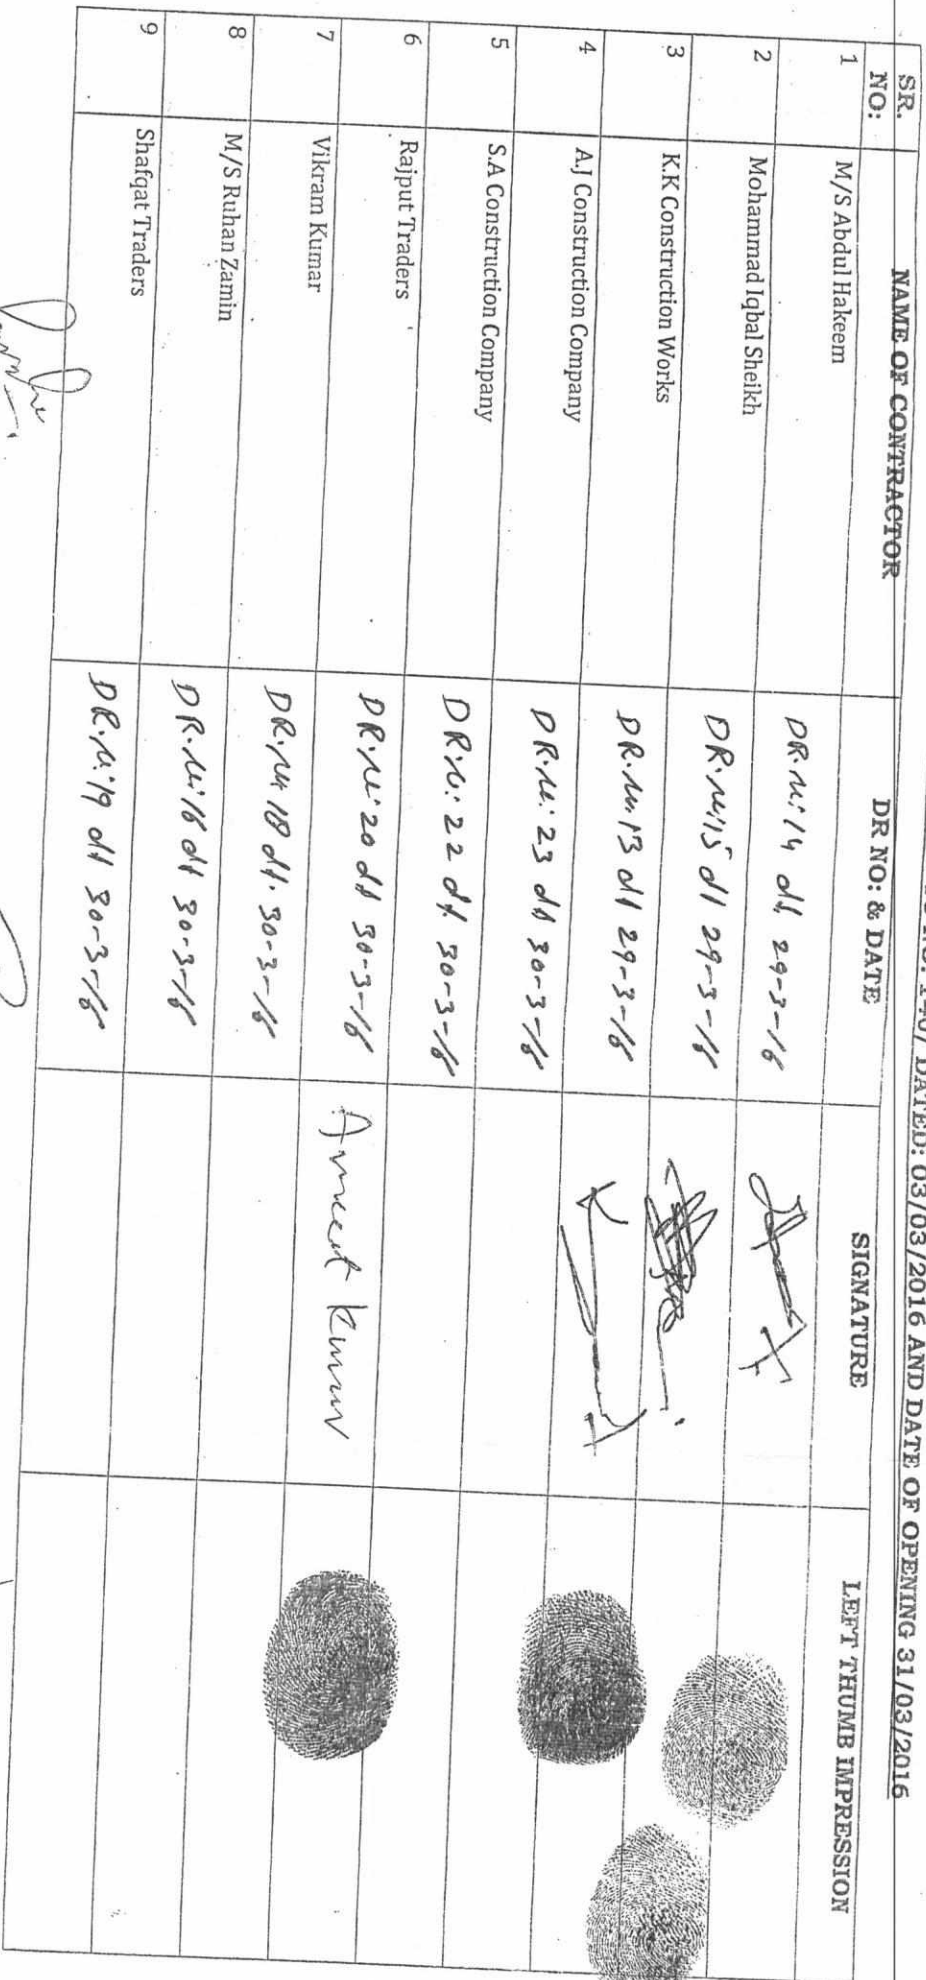 DATED: 03/03/2016 AND DATE OF OPENING 31/03/2016
SR. NO: NAME OF CONTRACTOR DR NO: & DATE SIGNATURE LEFT THUMB IMPRESSION
1 M/S Abdul Hakeem DR.No:14 dt 29-3-16
2 Mohammad Iqbal Sheikh DR.No:15 dt 29-3-16
3 K.K Construction Works DR.No:13 dt 29-3-16
4 A.J Construction Company DR.No:23 dt 30-3-16
5 S.A Construction Company DR.No:22 dt 30-3-16
6 Rajput Traders DR.No:20 dt 30-3-16 Ameet Kumar
7 Vikram Kumar DR.No 18 dt. 30-3-16
8 M/S Ruhan Zamin DR.No:16 dt 30-3-16
9 Shafqat Traders DR.No:19 dt 30-3-16